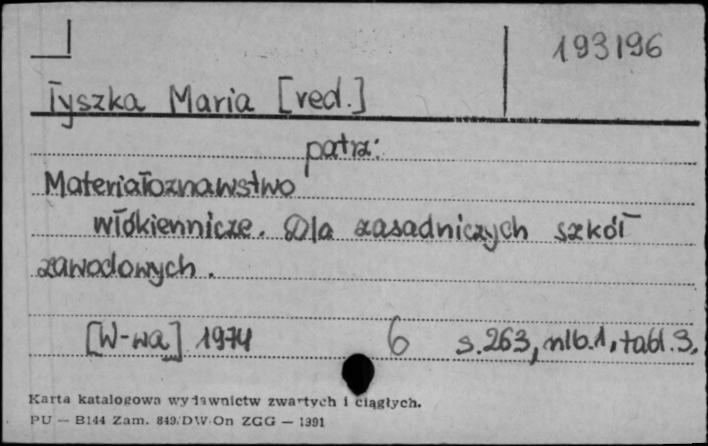 193196
Tyszka Maria [red.]
patrz:
Materiałoznawstwo
włókiennicze. Dla zasadniczych szkół
zawodowych.
[W-wa] 1974 6 s.263, nlb.1, tabl.3.
Karta katalogowa wydawnictw zwartych i ciągłych.
PU — B144 Zam. 849/DW-On ZGG — 1991